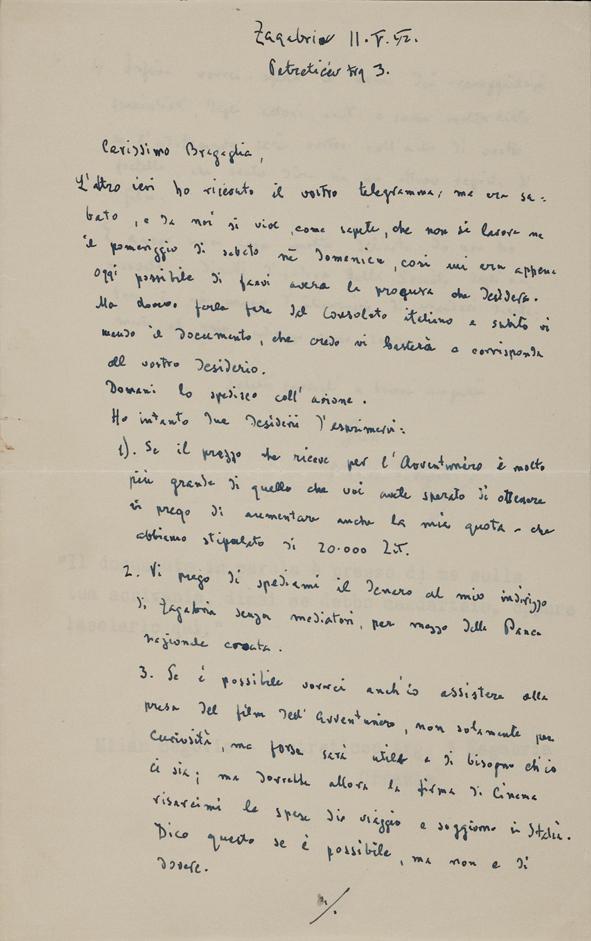 Zagabria 11.V.42.
Petretićev trg 3.
Carissimo Bragaglia,
L'altro ieri ho ricevuto il vostro telegramma; ma era sa=
bato, e da noi si vive, come sapete, che non si lavora ne
il pomeriggio di sabato nè Domenica, così mi era appena
oggi possibile di farvi avere la procura che desidera.
Ma dovevo farla fare dal Consolato italiano e subito vi
mando il Documento, che credo vi basterà a corrisponda
al vostro desiderio.
Domani lo spedisco coll'azione.
Ho intanto due desideri d'esprimervi:
1). Se il prezzo che riceve per l'Avventuriero è molto
più grande di quello che voi avete sperato di ottenere
vi prego di aumentare anche la mia quota – che
abbiamo stipulato di 20.000 Lit.
2. Vi prego di spediami il denaro al mio indirizzo
di Zagabria senza mediatori, per mezzo della Banca
nazionale croata.
3. Se è possibile vorrei anch'io assistere alla
presa del film dell'Avventuriero, non solamente per
curiosità, ma forse sarà utile e di bisogno ch'io
ci sia; ma dovrebbe allora la firma di Cinema
risarcirmi le spese di viaggio e soggiorno in Italia.
Dico questo se è possibile, ma non e di
dovere.
·/.